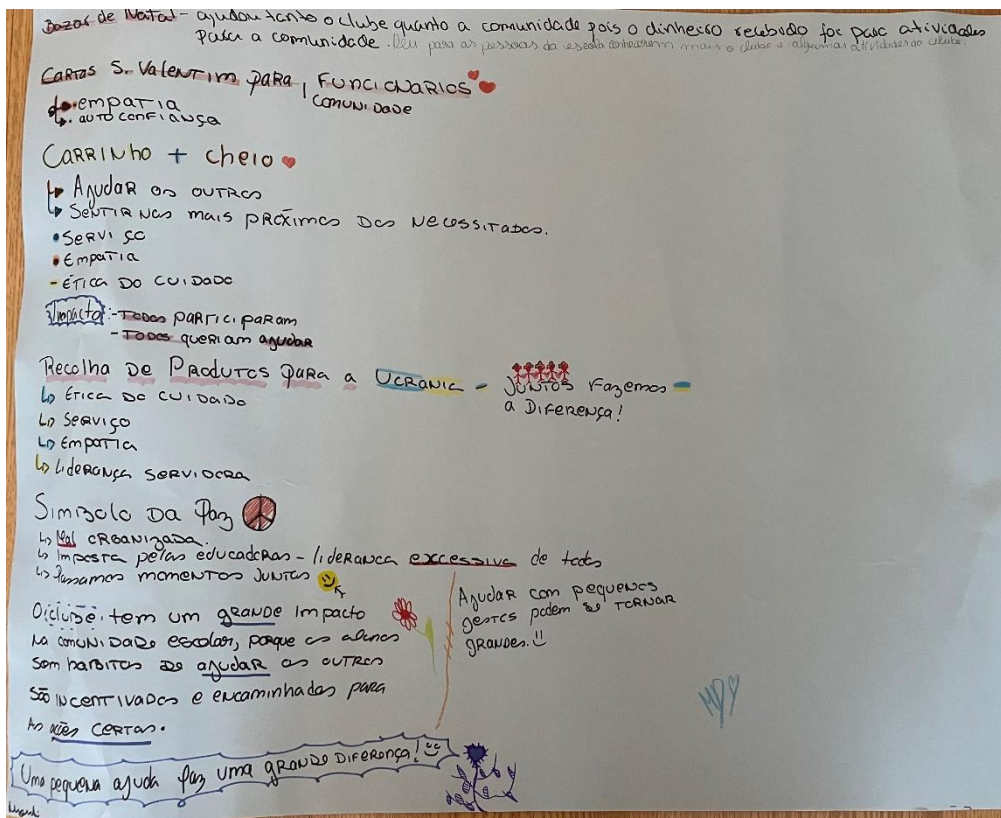 Bazar de Natal - ajudou tanto o clube quanto a comunidade pois o dinheiro recebido foi para atividades
para a comunidade. Deu para as pessoas da escola conhecerem mais o clube e algumas atividades do clube.
Cartas S. Valentim para funcionarios
comunidade
empatia
autoconfiança
Carrinho + cheio
Ajudar os outros
Sentirnos mais próximos dos necessitados.
• Serviço
• Empatia
- Ética do cuidado
Impacto: - Todos participaram
- Todos queriam ajudar
Recolha de Produtos para a Ucrania - Juntos fazemos -
a Diferença!
Ética do cuidado
Serviço
Empatia
Liderança servidora
Simbolo da Paz
Mal organizada.
Imposta pelas educadoras - liderança excessiva de todos
Passamos momentos juntos
O clube tem um grande impacto
na comunidade escolar, porque os alunos
sem habitos de ajudar os outros
são incentivados e encaminhados para
as ações certas.
Ajudar com pequenos
gestos podem se tornar
grandes.
Uma pequena ajuda faz uma grande diferença!